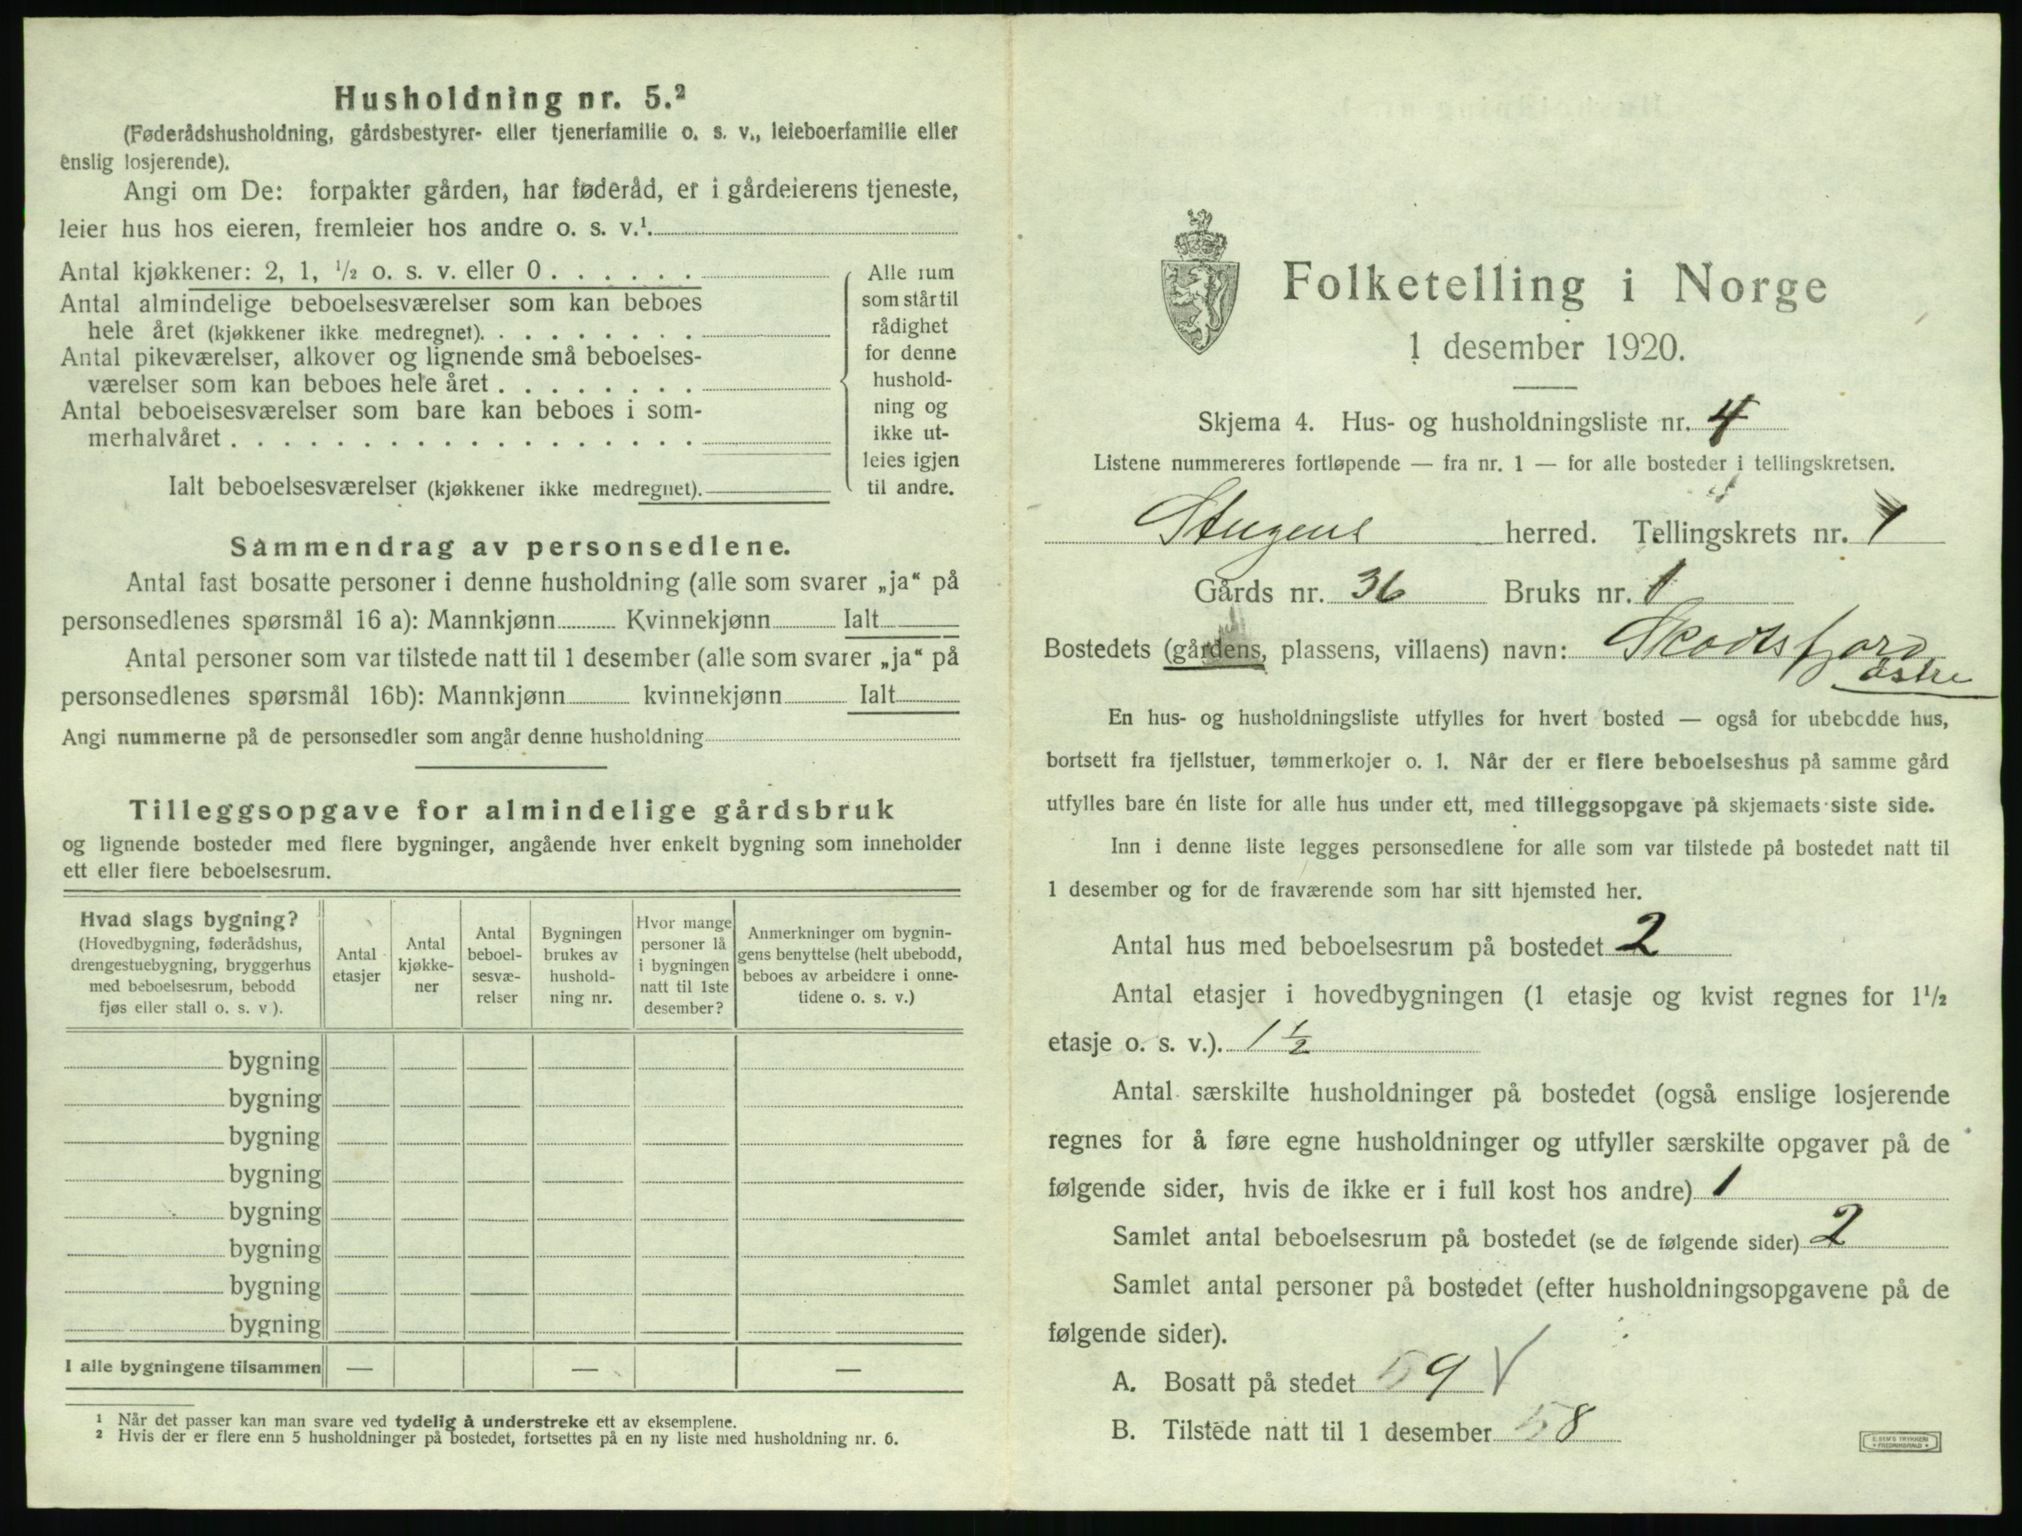 Husholdning nr. 5.²
(Føderådshusholdning, gårdsbestyrer- eller tjenerfamilie o. s. v., leieboerfamilie eller
enslig losjerende).
Angi om De: forpakter gården, har føderåd, er i gårdeierens tjeneste,
leier hus hos eieren, fremleier hos andre o. s. v.¹
Antal kjøkkener: 2, 1, ½ o. s. v. eller 0 . . . . . .
Antal almindelige beboelsesværelser som kan beboes
hele året (kjøkkener ikke medregnet). . . . . . . . .
Antal pikeværelser, alkover og lignende små beboelses-
værelser som kan beboes hele året . . . . . . . .
Antal beboelsesværelser som bare kan beboes i som-
merhalvåret . . . . . . . . . . . . . . . . . .
Ialt beboelsesværelser (kjøkkener ikke medregnet).
Alle rum
som står til
rådighet
for denne
hushold-
ning og
ikke ut-
leies igjen
til andre.
Sammendrag av personsedlene.
Antal fast bosatte personer i denne husholdning (alle som svarer „ja“ på
personsedlenes spørsmål 16 a): Mannkjønn Kvinnekjønn Ialt
Antal personer som var tilstede natt til 1 desember (alle som svarer „ja“ på
personsedlenes spørsmål 16b): Mannkjønn kvinnekjønn Ialt
Angi nummerne på de personsedler som angår denne husholdning
Tilleggsopgave for almindelige gårdsbruk
og lignende bosteder med flere bygninger, angående hver enkelt bygning som inneholder
ett eller flere beboelsesrum.
Hvad slags bygning?
(Hovedbygning, føderådshus,
drengestuebygning, bryggerhus
med beboelsesrum, bebodd
fjøs eller stall o. s. v ).
Antal
etasjer
Antal
kjøkke-
ner
Antal
beboel-
sesvæ-
relser
Bygningen
brukes av
hushold-
ning nr.
Hvor mange
personer lå
i bygningen
natt til 1ste
desember?
Anmerkninger om bygnin-
gens benyttelse (helt ubebodd,
beboes av arbeidere i onne-
tidene o. s. v.)
bygning
bygning
bygning
bygning
bygning
bygning
bygning
bygning
I alle bygningene tilsammen — — —
¹ Når det passer kan man svare ved tydelig å understreke ett av eksemplene.
² Hvis der er flere enn 5 husholdninger på bostedet, fortsettes på en ny liste med husholdning nr. 6.
Folketelling i Norge
1 desember 1920.
Skjema 4. Hus- og husholdningsliste nr. 4
Listene nummereres fortløpende — fra nr. 1 — for alle bosteder i tellingskretsen.
Stugens herred. Tellingskrets nr.
Gårds nr. 36 Bruks nr. 1
Bostedets (gårdens, plassens, villaens) navn: Skodsfjord
østre
En hus- og husholdningsliste utfylles for hvert bosted — også for ubebodde hus,
bortsett fra fjellstuer, tømmerkojer o. l. Når der er flere beboelseshus på samme gård
utfylles bare én liste for alle hus under ett, med tilleggsopgave på skjemaets siste side.
Inn i denne liste legges personsedlene for alle som var tilstede på bostedet natt til
1 desember og for de fraværende som har sitt hjemsted her.
Antal hus med beboelsesrum på bostedet 2
Antal etasjer i hovedbygningen (1 etasje og kvist regnes for 1½
etasje o. s. v.). 1 ½
Antal særskilte husholdninger på bostedet (også enslige losjerende
regnes for å føre egne husholdninger og utfyller særskilte opgaver på de
følgende sider, hvis de ikke er i full kost hos andre) 1
Samlet antal beboelsesrum på bostedet (se de følgende sider) 2
Samlet antal personer på bostedet (efter husholdningsopgavene på de
følgende sider).
A. Bosatt på stedet 9
B. Tilstede natt til 1 desember 8
E. SEM'S TRYKKERI
FREDRIKSHALD